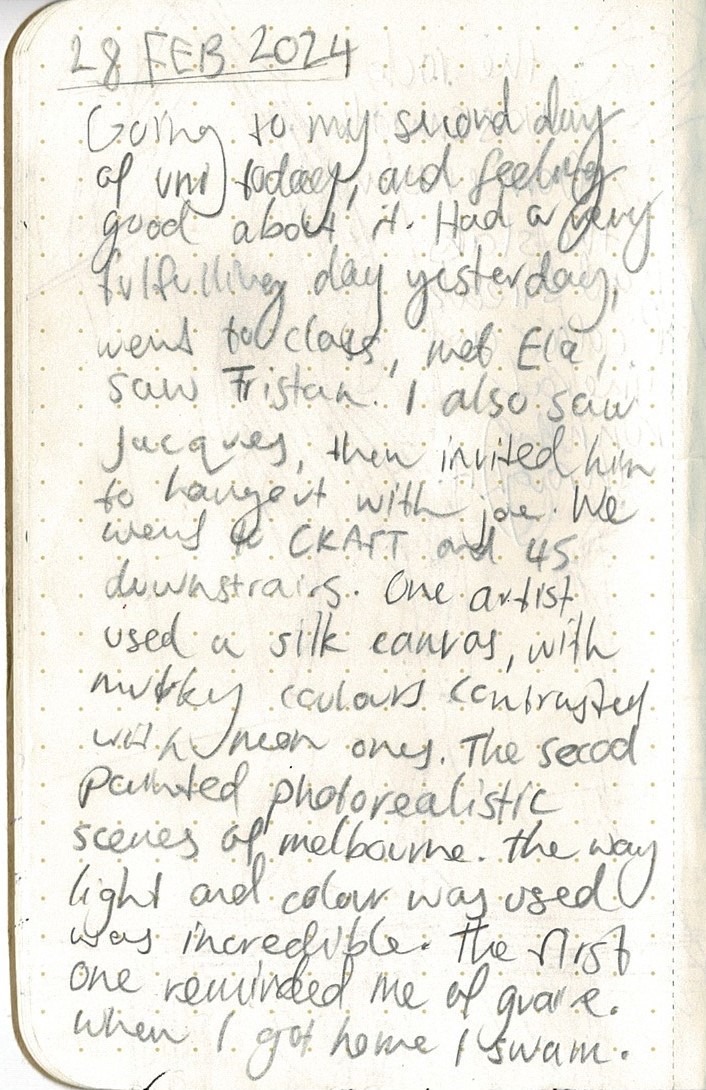 28 FEB 2024
Going to my second day
of uni today, and feeling
good about it. Had a very
fulfilling day yesterday,
went to class, met Ela,
saw Tristan. I also saw
Jacques, then invited him
to hangout with joe. We
went to CRAFT and 45
downstrairs. One artist
used a silk canvas, with
murky colours contrasted
with neon ones. The secod
painted photorealistic
scenes of melbourne. The way
light and colour was used
was incredible. The first
one reminded me of
When I got home I swam.